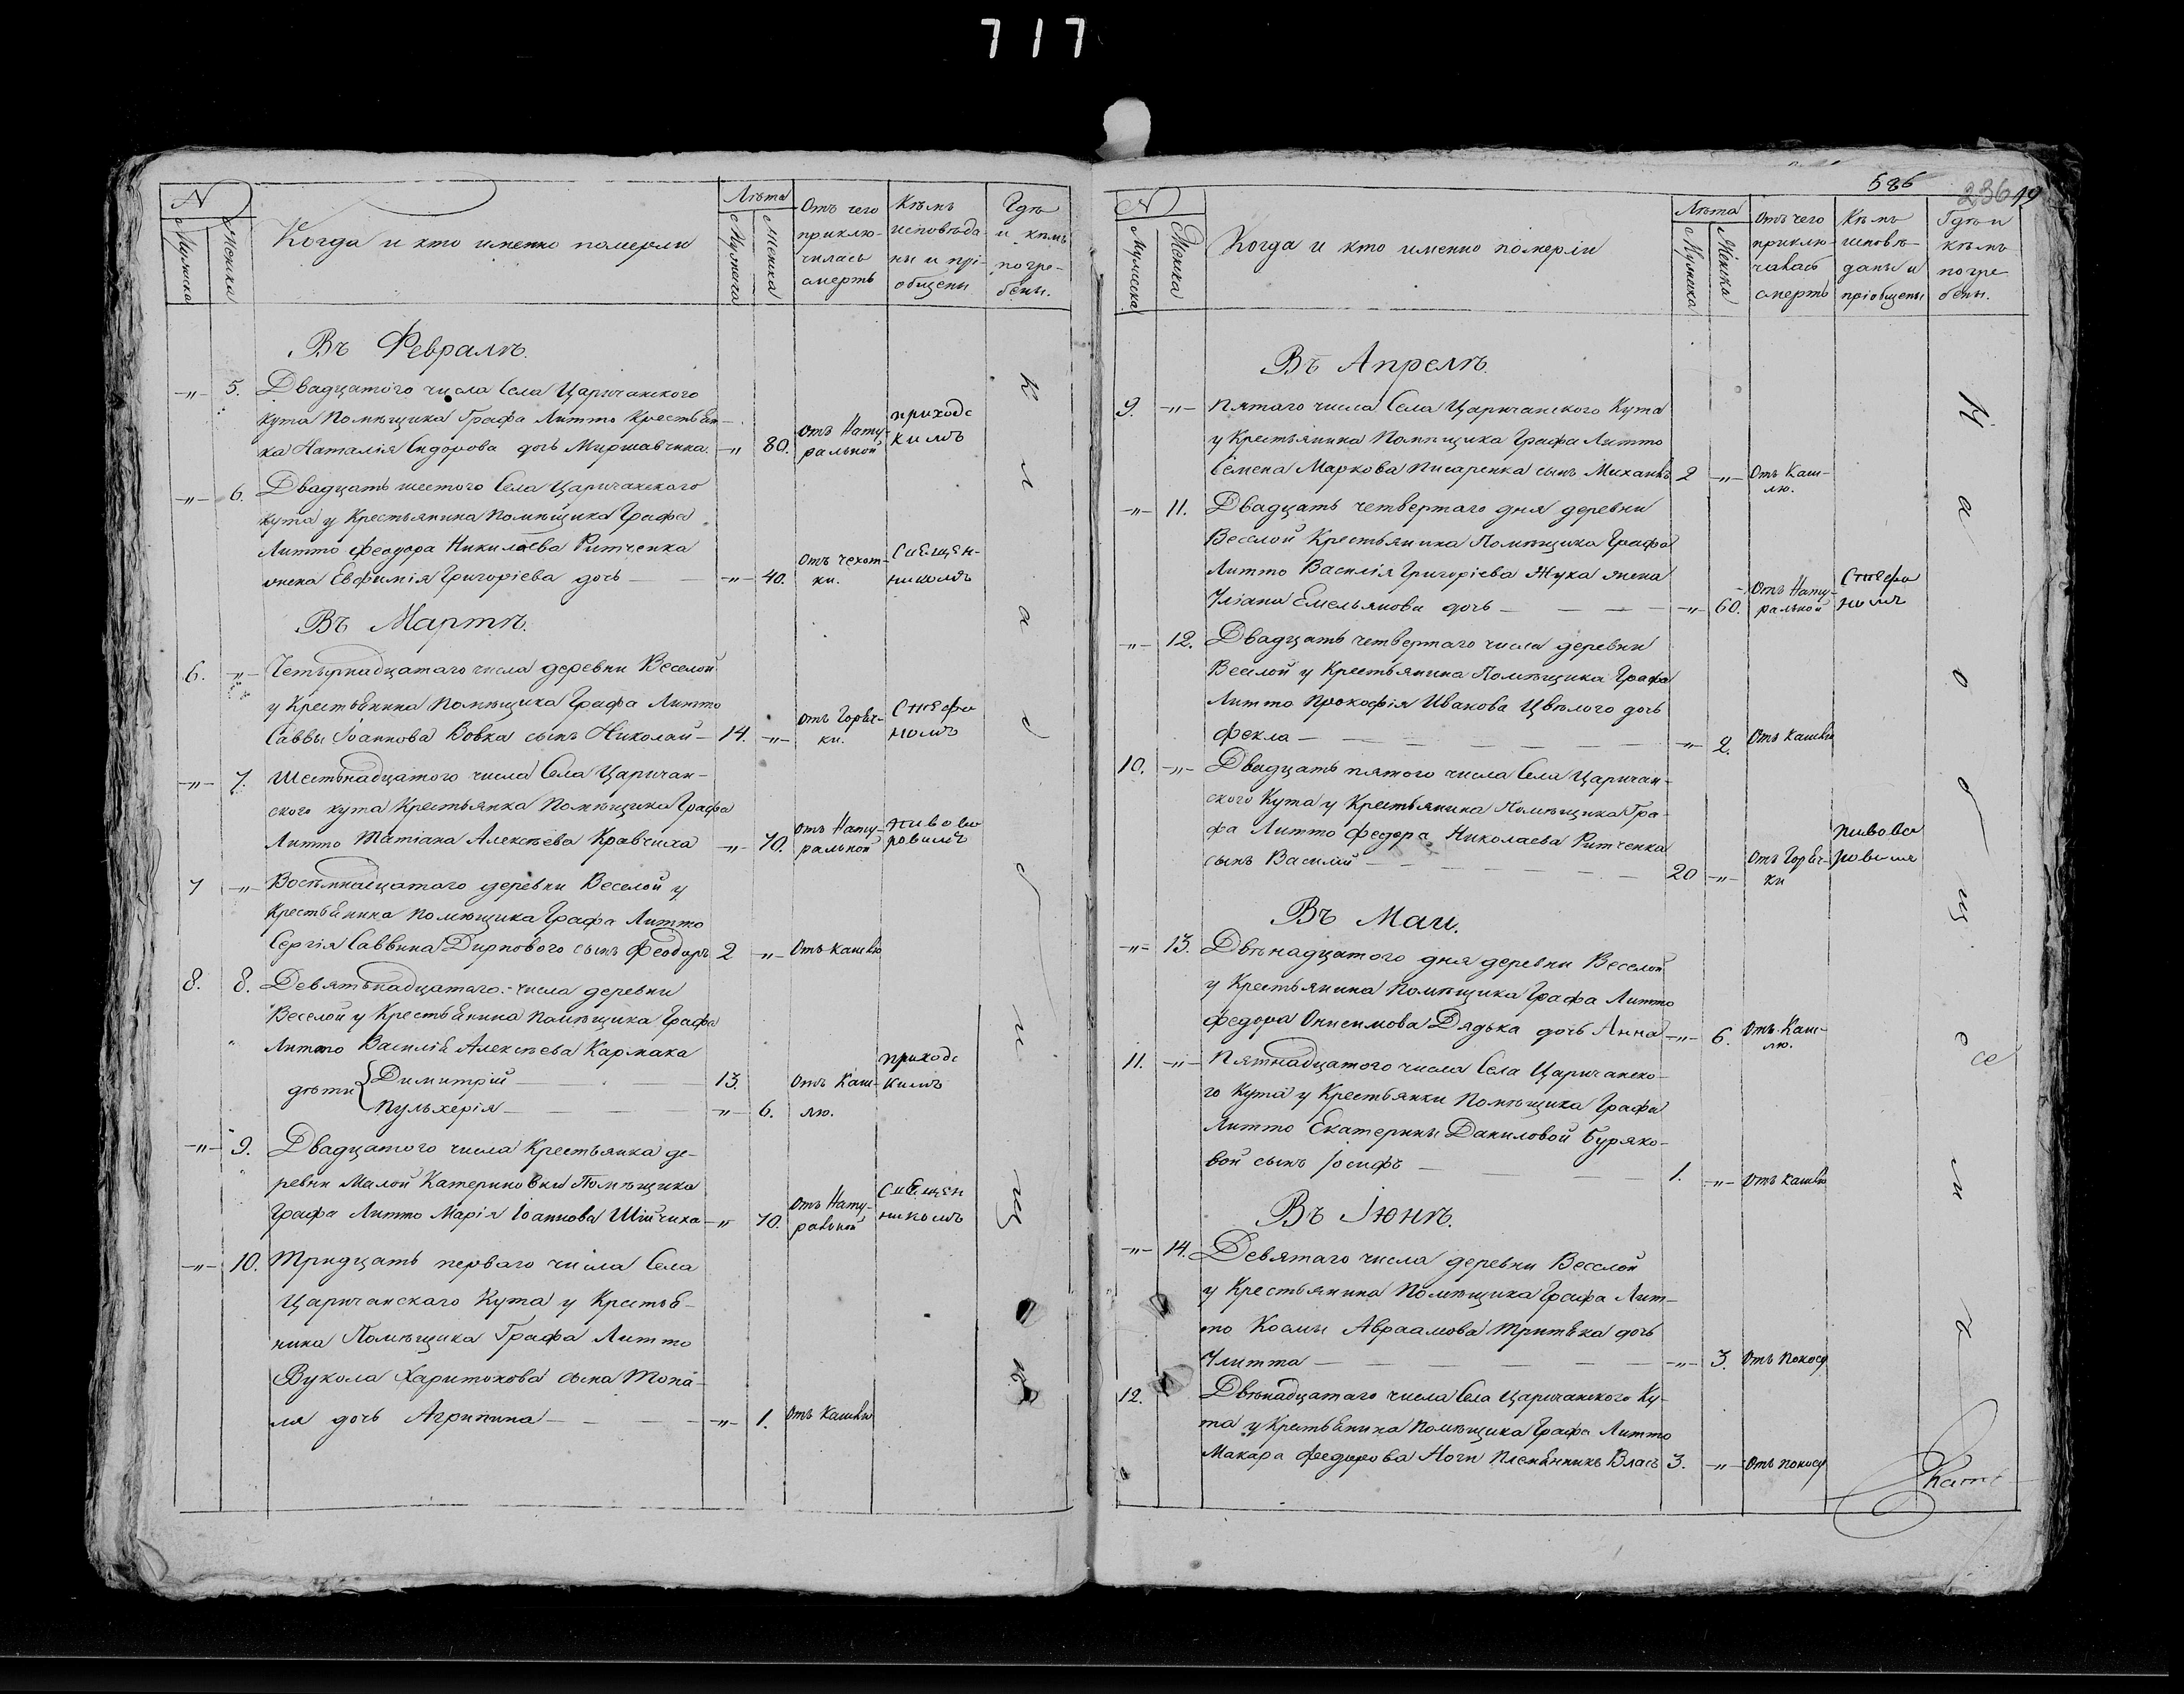 717
N
Мужска
Женска
Когда и кто именно померли
Лѣта
Мужеска
Женска
Отъ чего
приклю-
чилась
смерть
Кѣмъ
исповѣда-
ны и прі-
общены
Гдѣ
и кѣмъ
погре-
бены.
Въ Февралѣ.
-"- 5. Двадцатого числа Села Царичанского
кута Помѣщика Графа Литто крестьян-
ка Наталія Сидорова дочь Миршавчика. -" 80. Отъ Нату-
ральной
приходс
кимъ
-"- 6. Двадцать шестого Села Царичанского
кута у Крестьянина Помѣщика Графа
Литто Феодора Николаева Ритченка
жена Евфимія Григоріева дочь -"- 40. Отъ чехот-
ки.
Священ-
никомъ
Въ Мартѣ.
6. -"- Четырнадцатаго числа деревни Веселой
у Крестьянина Помѣщика Графа Литто
Саввы Іоаннова Вовка сынъ Николай - 14. -"- Отъ Горяч-
ки.
Стефа
номъ
-"- 7. Шестьнадцатого числа Села Царичан-
ского кута Крестьянка Помѣщика Графа
Литто Татіана Алексѣева Кравчиха -"- 70. Отъ Нату-
ральной
пивова
ровимъ
7 -"- Восѣмнадцатаго деревни Веселой у
Крестьянина Помѣщика Графа Литто
Сергія Саввина Дирпового сынъ Феодоръ 2 -"- Отъ кашлю
8. 8. Девятьнадцатаго числа деревни
Веселой у Крестьянина Помѣщика Графа
Литто Василія Алексѣева Кармака
дѣти { Димитрій - 13. Отъ Каш-
Пульхерія - -"- 6. лю.
приходс
кимъ
-"- 9. Двадцатого числа Крестьянка де-
ревни Малой Катериновки Помѣщика
Графа Литто Марія Іоаннова Шійчиха -"- 70. Отъ Нату-
ральной
Священ
никомъ
-"- 10. Тридцать перваго числа Села
Царичанскаго Кута у Крестья-
нина Помѣщика Графа Литто
Вукола Харитонова сына Топа-
ля дочь Агрипина - -"- 1. Отъ Кашлю
586
236
19
N
Мужеска
Женска
Когда и кто именно померли
Лѣта
Мужеска
Женска
Отъ чего
приклю-
чилась
смерть
Кѣмъ
исповѣ-
даны и
пріобщены
Гдѣ и
кѣмъ
погре
бены.
Въ Апрелѣ.
9. -"- Пятаго числа Села Царичанского Кута
у Крестьянина Помѣщика Графа Литто
Семена Маркова Писаренка сынъ Михаилъ 2 -"- Отъ Каш-
лю.
-"- 11. Двадцать четвертаго дня деревни
Веселой Крестьянина Помѣщика Графа
Литто Василія Григоріева Жука жена
Уліана Емельянова дочь - -"- 60. Отъ Нату-
ральной
Стефа
номъ
-"- 12. Двадцать четвертаго числа деревни
Веселой у Крестьянина Помѣщика Графа
Литто Прокофія Иванова Цвѣлого дочь
Фекла - -"- 2. Отъ Кашлю
10. -"- Двадцать пятого числа Села Царичан-
ского Кута у Крестьянина Помѣщика Гра-
фа Литто Федора Николаева Ритченка
сынъ Василій - 20 -"- Отъ Горяч-
ки
пивова
ровимъ
Въ Маи.
-"- 13. Двѣнадцатого дня деревни Веселой
у Крестьянина Помѣщика Графа Литто
Федора Онисимова Дядька дочь Анна -"- 6. Отъ Каш-
лю.
11. -"- Пятнадцатого числа Села Царичанско-
го Кута у Крестьянки Помѣщика Графа
Литто Екатерины Даниловой Буряко-
вой сынъ Іосифъ - 1. -"- Отъ Кашлю
Въ Іюнѣ.
-"- 14. Девятаго числа деревни Веселой
у Крестьянина Помѣщика Графа Лит-
то Космы Авраамова Тритяка дочь
Улитта - -"- 3. Отъ Поносу
12. Двѣнадцатаго числа Села Царичанского Ку-
та у Крестьянина Помѣщика Графа Литто
Макара Федорова Ноги Племянникъ Власъ 3. -"- Отъ поносу